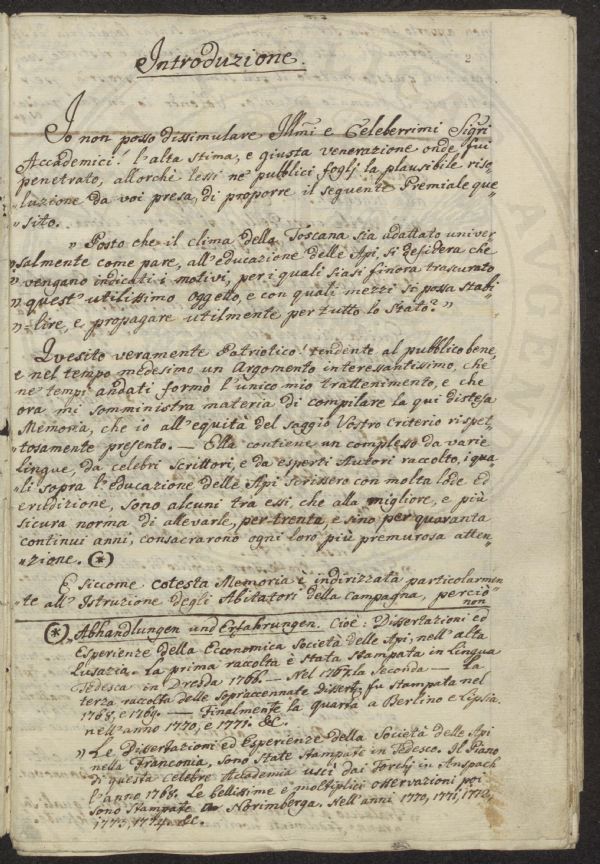 Introduzione.
2
Io non posso dissimulare Illmi e Celeberrimi Sigri
Accademici: l'alta stima, e giusta venerazione onde fui
penetrato, allorchè lessi ne' pubblici foglj la plausibile riso-
„luzione da voi presa, di proporre il seguente Premiale que-
„sito.
„ Posto che il clima della Toscana sia adattato univer-
„salmente come pare, all'educazione delle Api, si desidera che
„ vengano indicati i motivi, per i quali siasi finora trascurato
„ quest' utilissimo Oggetto, e con quali mezzi si possa stabi-
„ -lire, e propagare utilmente per tutto lo Stato? „
Quesito veramente Patriotico! tendente al pubblico bene,
e nel tempo medesimo un Argomento interessantissimo, che
ne' tempi andati formò l'unico mio trattenimento, e che
ora mi somministra materia di compilare la qui distesa
Memoria, che io all'equità del saggio Vostro criterio rispet-
„tosamente presento. — Ella contiene un complesso da varie
Lingue, da celebri Scrittori, e da esperti Autori raccolto, i qua-
li sopra l'educazione delle Api scrissero con molta lode ed
erudizione, sono alcuni tra essi, che alla migliore, e più
sicura norma di allevarle, per trenta, e sino per quaranta
continui anni, consacrarono ogni loro più premurosa atten-
„zione. (*)
E siccome cotesta Memoria è indirizzata particolarmen-
te all' Istruzione degli Abitatori della Campagna, perciò
non
(*) „Abhandlungen und Erfahrungen. Cioè: Dissertazioni ed
Esperienze della Economica Società delle Api, nell'alta
Lusazia. La prima raccolta è stata stampata in Lingua
Tedesca in Dresda 1766. — Nel 1767. la Seconda — La
terza raccolta delle Sopraccennate dissert: fu stampata nel
1768, e 1769. — Finalmente la quarta a Berlino e Lipsia
nell'anno 1770, e 1771. &c.
„ Le Dissertazioni ed Esperienze della Società delle Api
nella Franconia, sono State Stampate in Tedesco. Il Piano
di questa celebre Accademia uscì dai Torchj in Anspach
l'anno 1768. Le bellissime e moltiplici osservazioni poi
sono Stampate a Norimberga. Nell'anni 1770, 1771, 1772,
1773, 1774. &c.